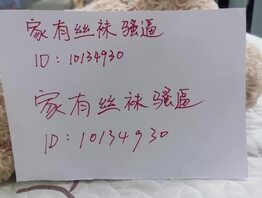 家有丝袜骚逼
ID:10134930
家有丝袜骚逼
ID:10134930